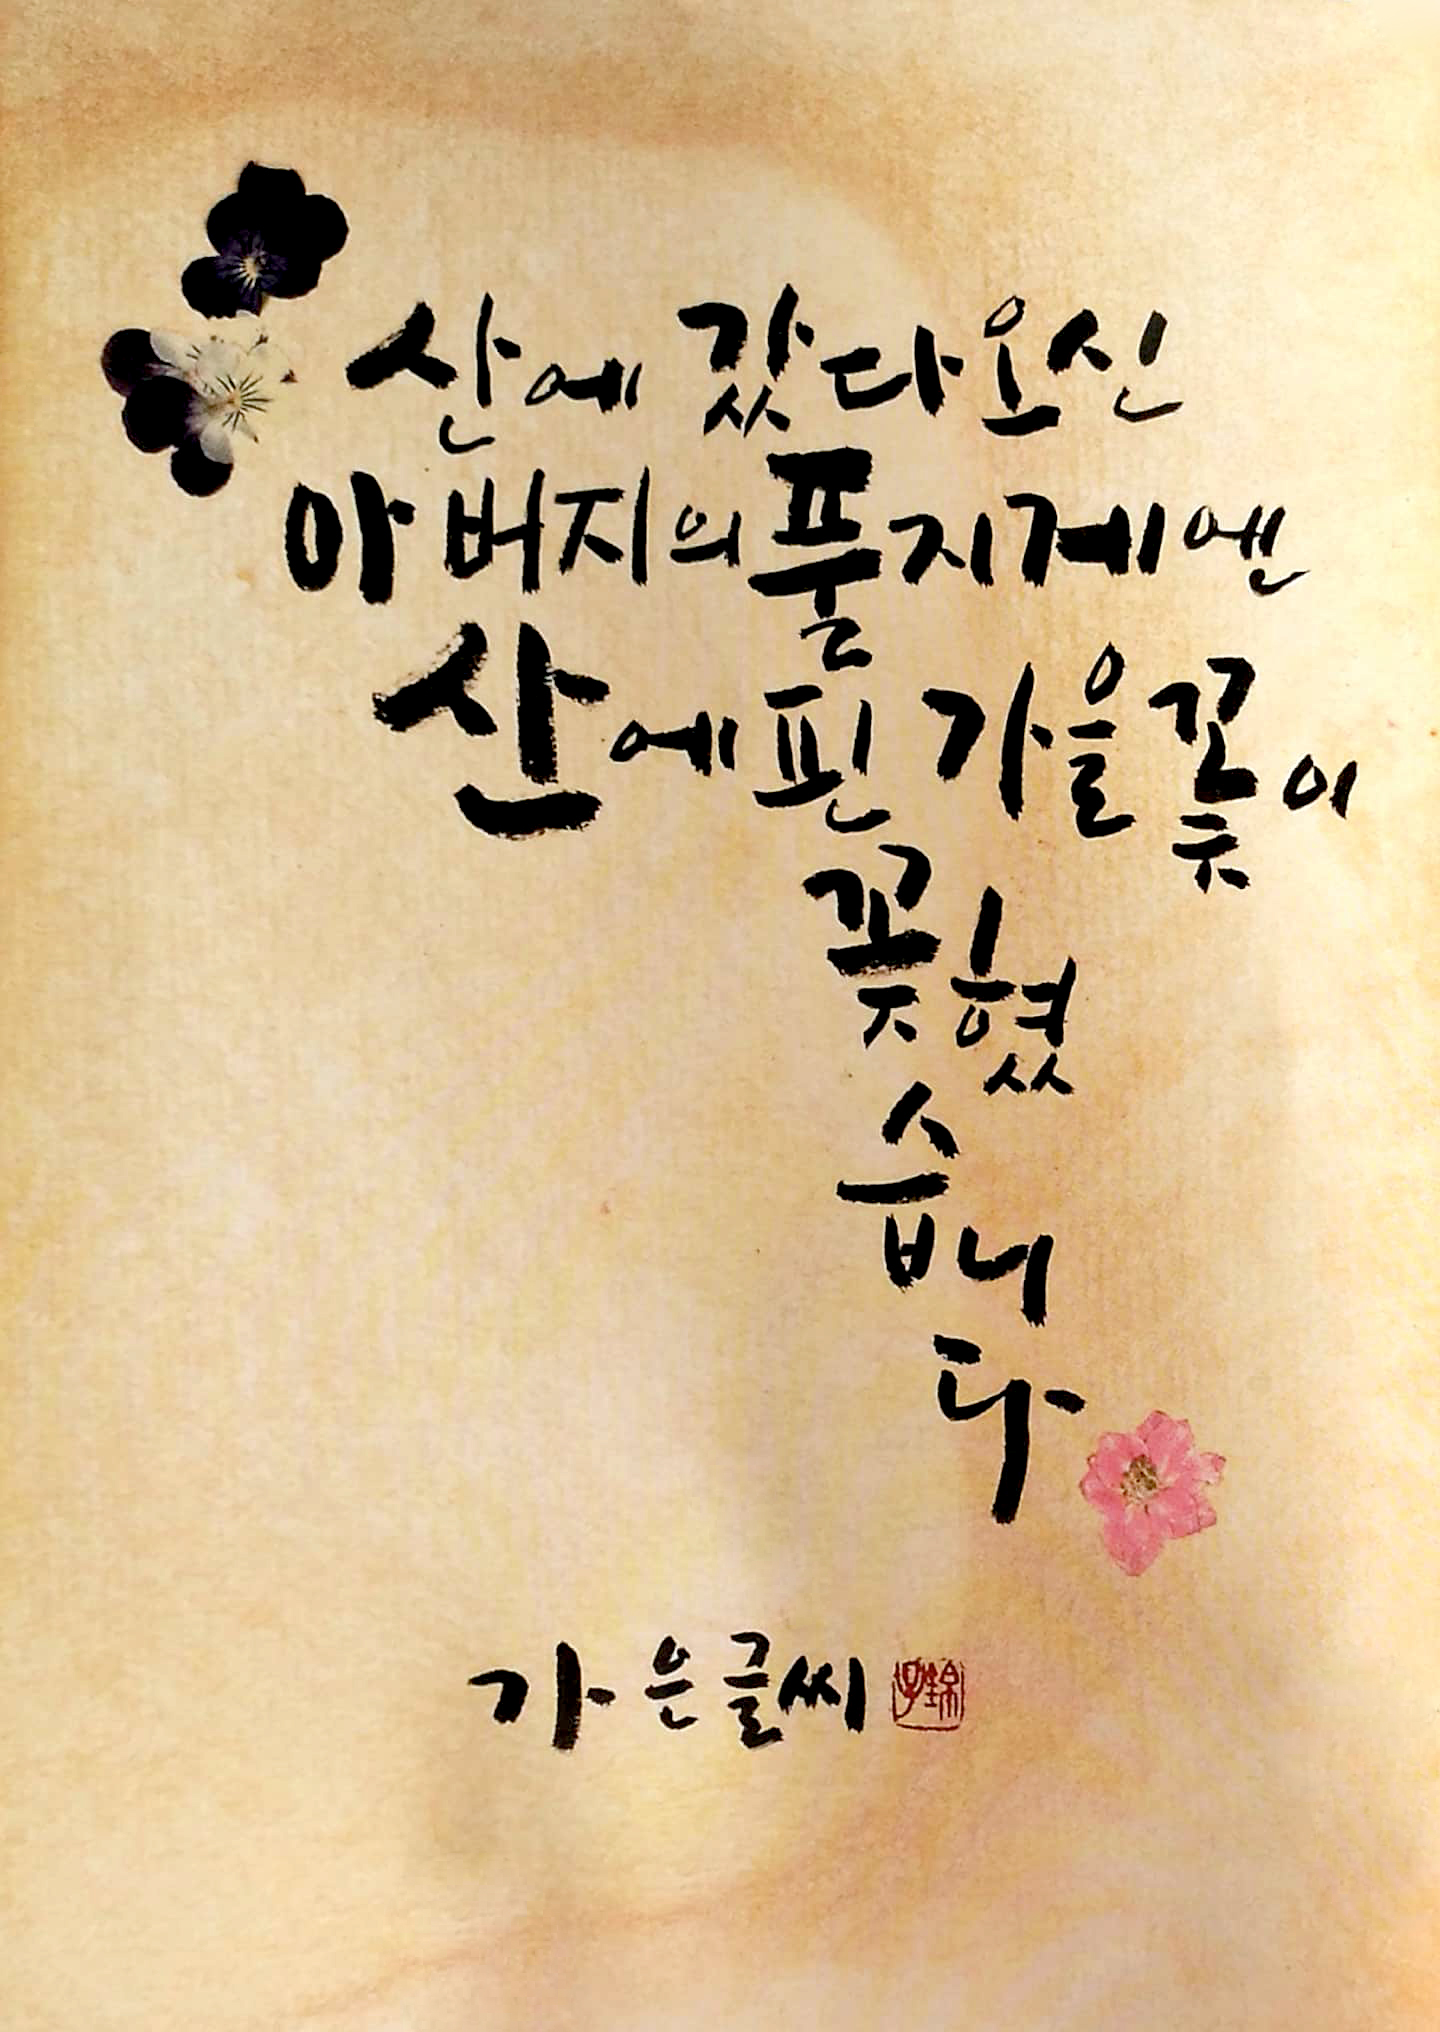 산에 갔다 오신
아버지의 풀지게엔
산에 핀 가을 꽃이
꽂혔
습니
다
가은글씨